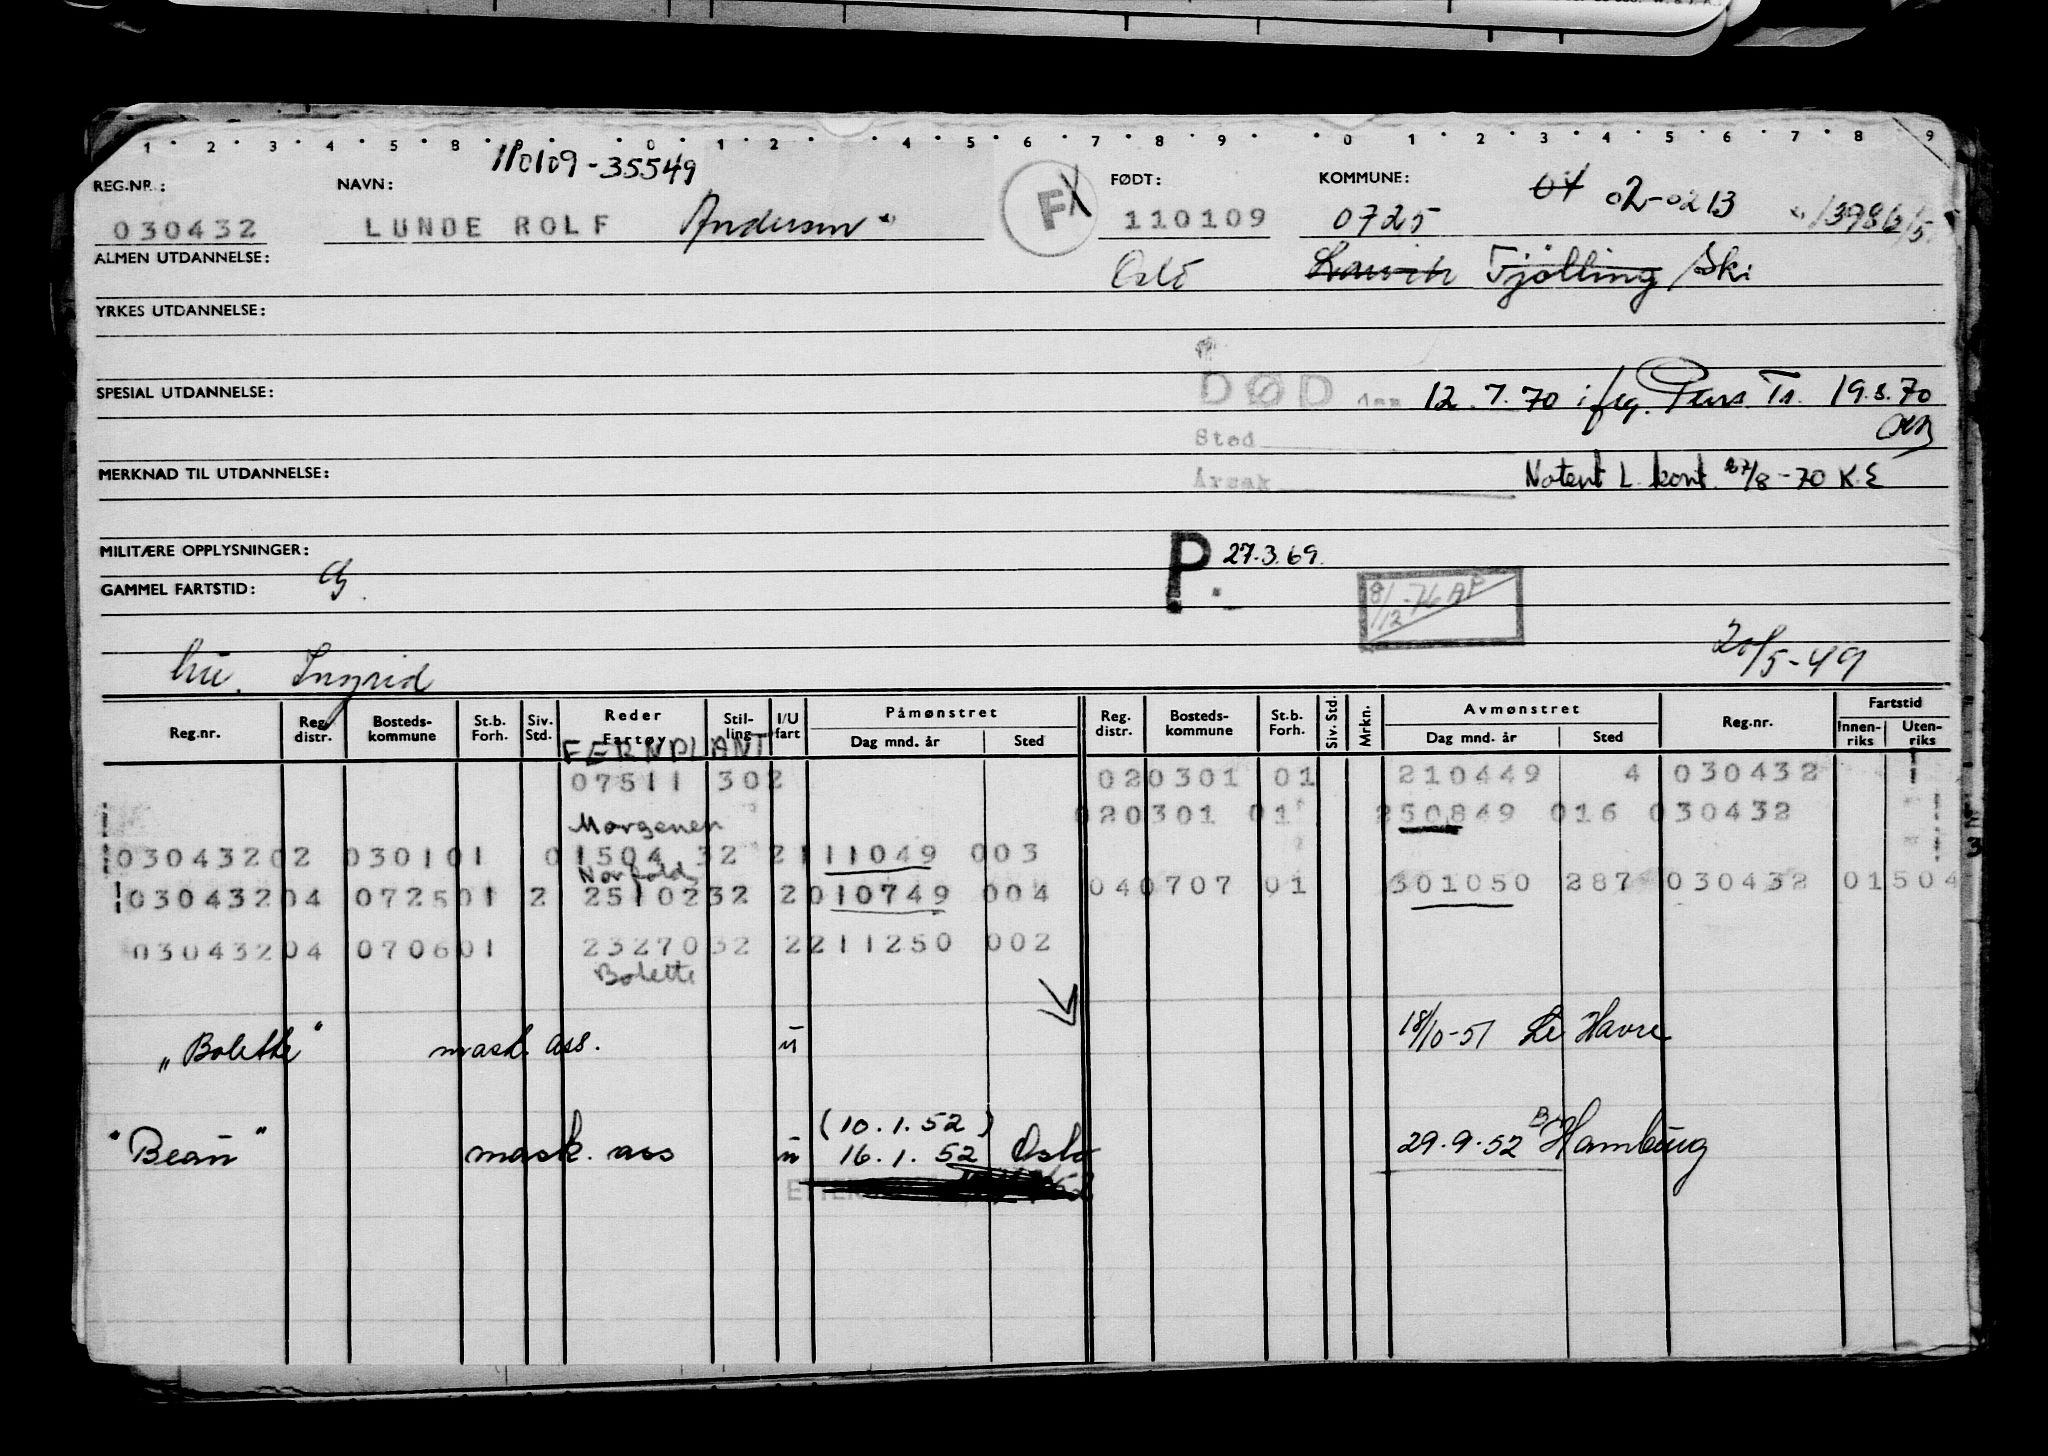 1 2 3 4 5 8 0 1 2 4 5 6 7 8 9 0 1 2 3 4 5 6 7 8 9
110109-35549
REG.NR.: NAVN: F FØDT: KOMMUNE: 04 02-0213
030432 LUNDE ROLF Anderson 110109 0725
ALMEN UTDANNELSE: Oslo Larvik Tjølling Ski
YRKES UTDANNELSE:
SPESIAL UTDANNELSE: DØD 12.7.70 iføg. Pens Tr. 19.8.70
Sted
MERKNAD TIL UTDANNELSE: Årsak Notert L. kont. 27/8-70 K.E
MILITÆRE OPPLYSNINGER: P. 27.3.69.
GAMMEL FARTSTID: 8/12-76 AP
hu. Ingrid 20/5-49
Reg.nr. Reg. distr. Bosteds- kommune St.b. Forh. Siv. Std. Reder Fartøy Stil- ling I/U fart Påmønstret Dag mnd. år Sted Reg. distr. Bosteds- kommune St.b. Forh. Siv. Std. Mrkn. Avmønstret Dag mnd. år Sted Reg.nr. Fartstid Innen- riks Uten- riks
FERNPLANT
07511 302 020301 01 210449 4 030432
Morgenen 020301 01 250849 016 030432
03043202 030101 01504 32 2111049 003
Norfold
03043204 072501 2 2510232 2010749 004 040707 01 301050 287 030432 01504
03043204 070601 2327032 2211250 002
Bolette
"Bolette" mask. ass. u 18/10-51 Le Havre
(10.1.52)
"Beau" mask. ass u 16.1.52 Oslo 29.9.52 Hamburg